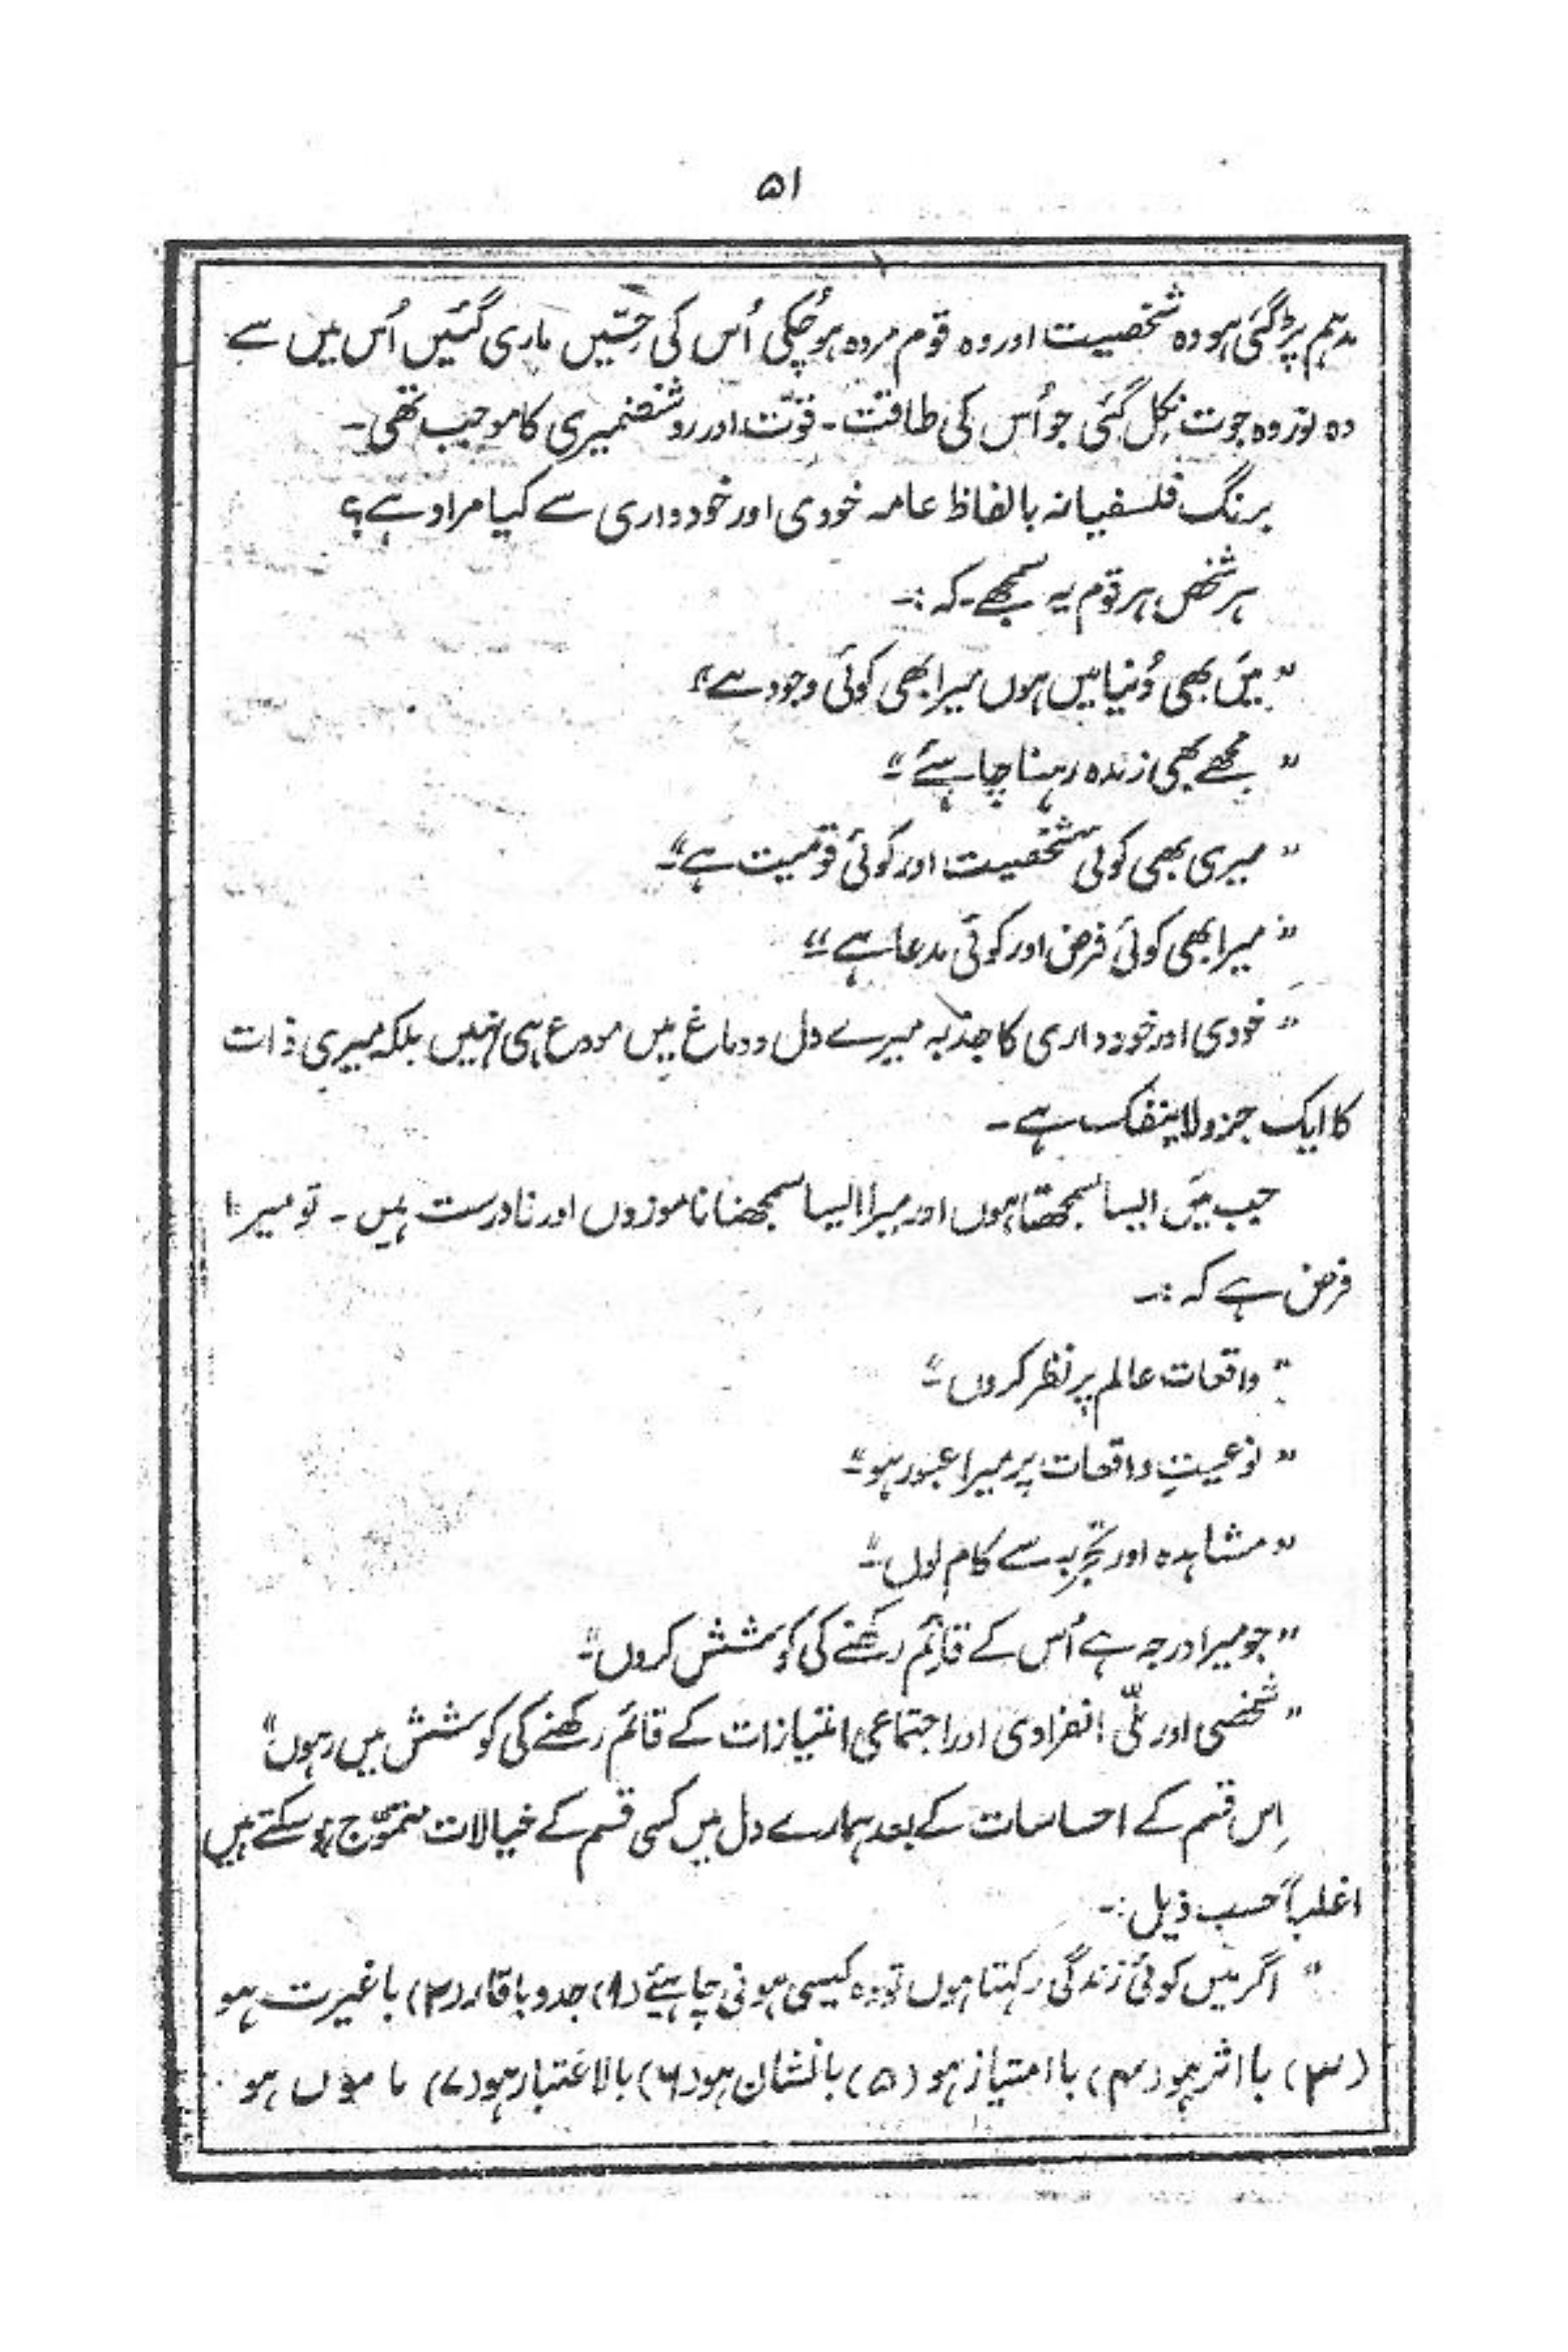 ۵۱
مدہم پڑگئی ہو وہ شخصیت اور وہ قوم مردہ ہوچکی اُس کی حِسّیں ماری گئیں اُس میں سے
وہ نور وہ جوت نکل گئی جو اُس کی طاقت۔ قوّت اور روشنضمیری کا موجب تھی۔
برنگ فلسفیانہ بالفاظ عامہ خودی اور خودداری سے کیا مراد ہے؟
ہر شخص ہر قوم یہ سمجھے۔ کہ :۔
"مَیں بھی دُنیا میں ہوں میرا بھی کوئی وجود ہے"
"مجھے بھی زندہ رہنا چاہئے۔"
"میری بھی کوئی شخصیت اور کوئی قومیّت ہے"۔
"میرا بھی کوئی فرض اور کوئی مدعا ہے۔"
"خودی اور خودداری کا جذبہ میرے دل و دماغ میں مودع ہی نہیں بلکہ میری ذات
کا ایک جزو لاینفک ہے۔
جب مَیں ایسا سمجھتا ہوں اور میرا ایسا سمجھنا ناموزوں اور نادرست نہیں۔ تو میرا
فرض ہے کہ :۔
"واقعات عالم پر نظر کروں۔"
"نوعیتِ واقعات پر میرا عبور ہو۔"
"مشاہدہ اور تجربہ سے کام لوں۔"
"جو میرا درجہ ہے اُس کے قائم رکھنے کی کوشش کروں۔"
"شخصی اور ملّی انفرادی اور اجتماعی امتیازات کے قائم رکھنے کی کوشش میں رہوں"
اِس قسم کے احساسات کے بعد ہمارے دل میں کسی قسم کے خیالات متموّج ہو سکتے ہیں
اغلباً حسب ذیل :۔
"اگر میں کوئی زندگی رکہتا ہوں تو وہ کیسی ہونی چاہیئے (۱) جدوباقار (۲) باغیرت ہو
(۳) بااثر ہو (۴) باامتیاز ہو (۵) بانشان ہو (۶) بالاعتبار ہو (۷) ہو